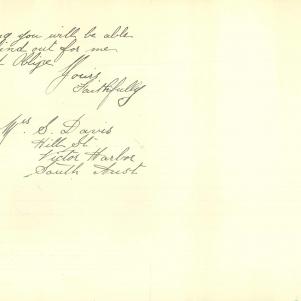 ng you will be able
ind out for me
Oblige
Yours
Faithfully
Mrs S. Davis
Hill St
Victor Harbor
South Aust